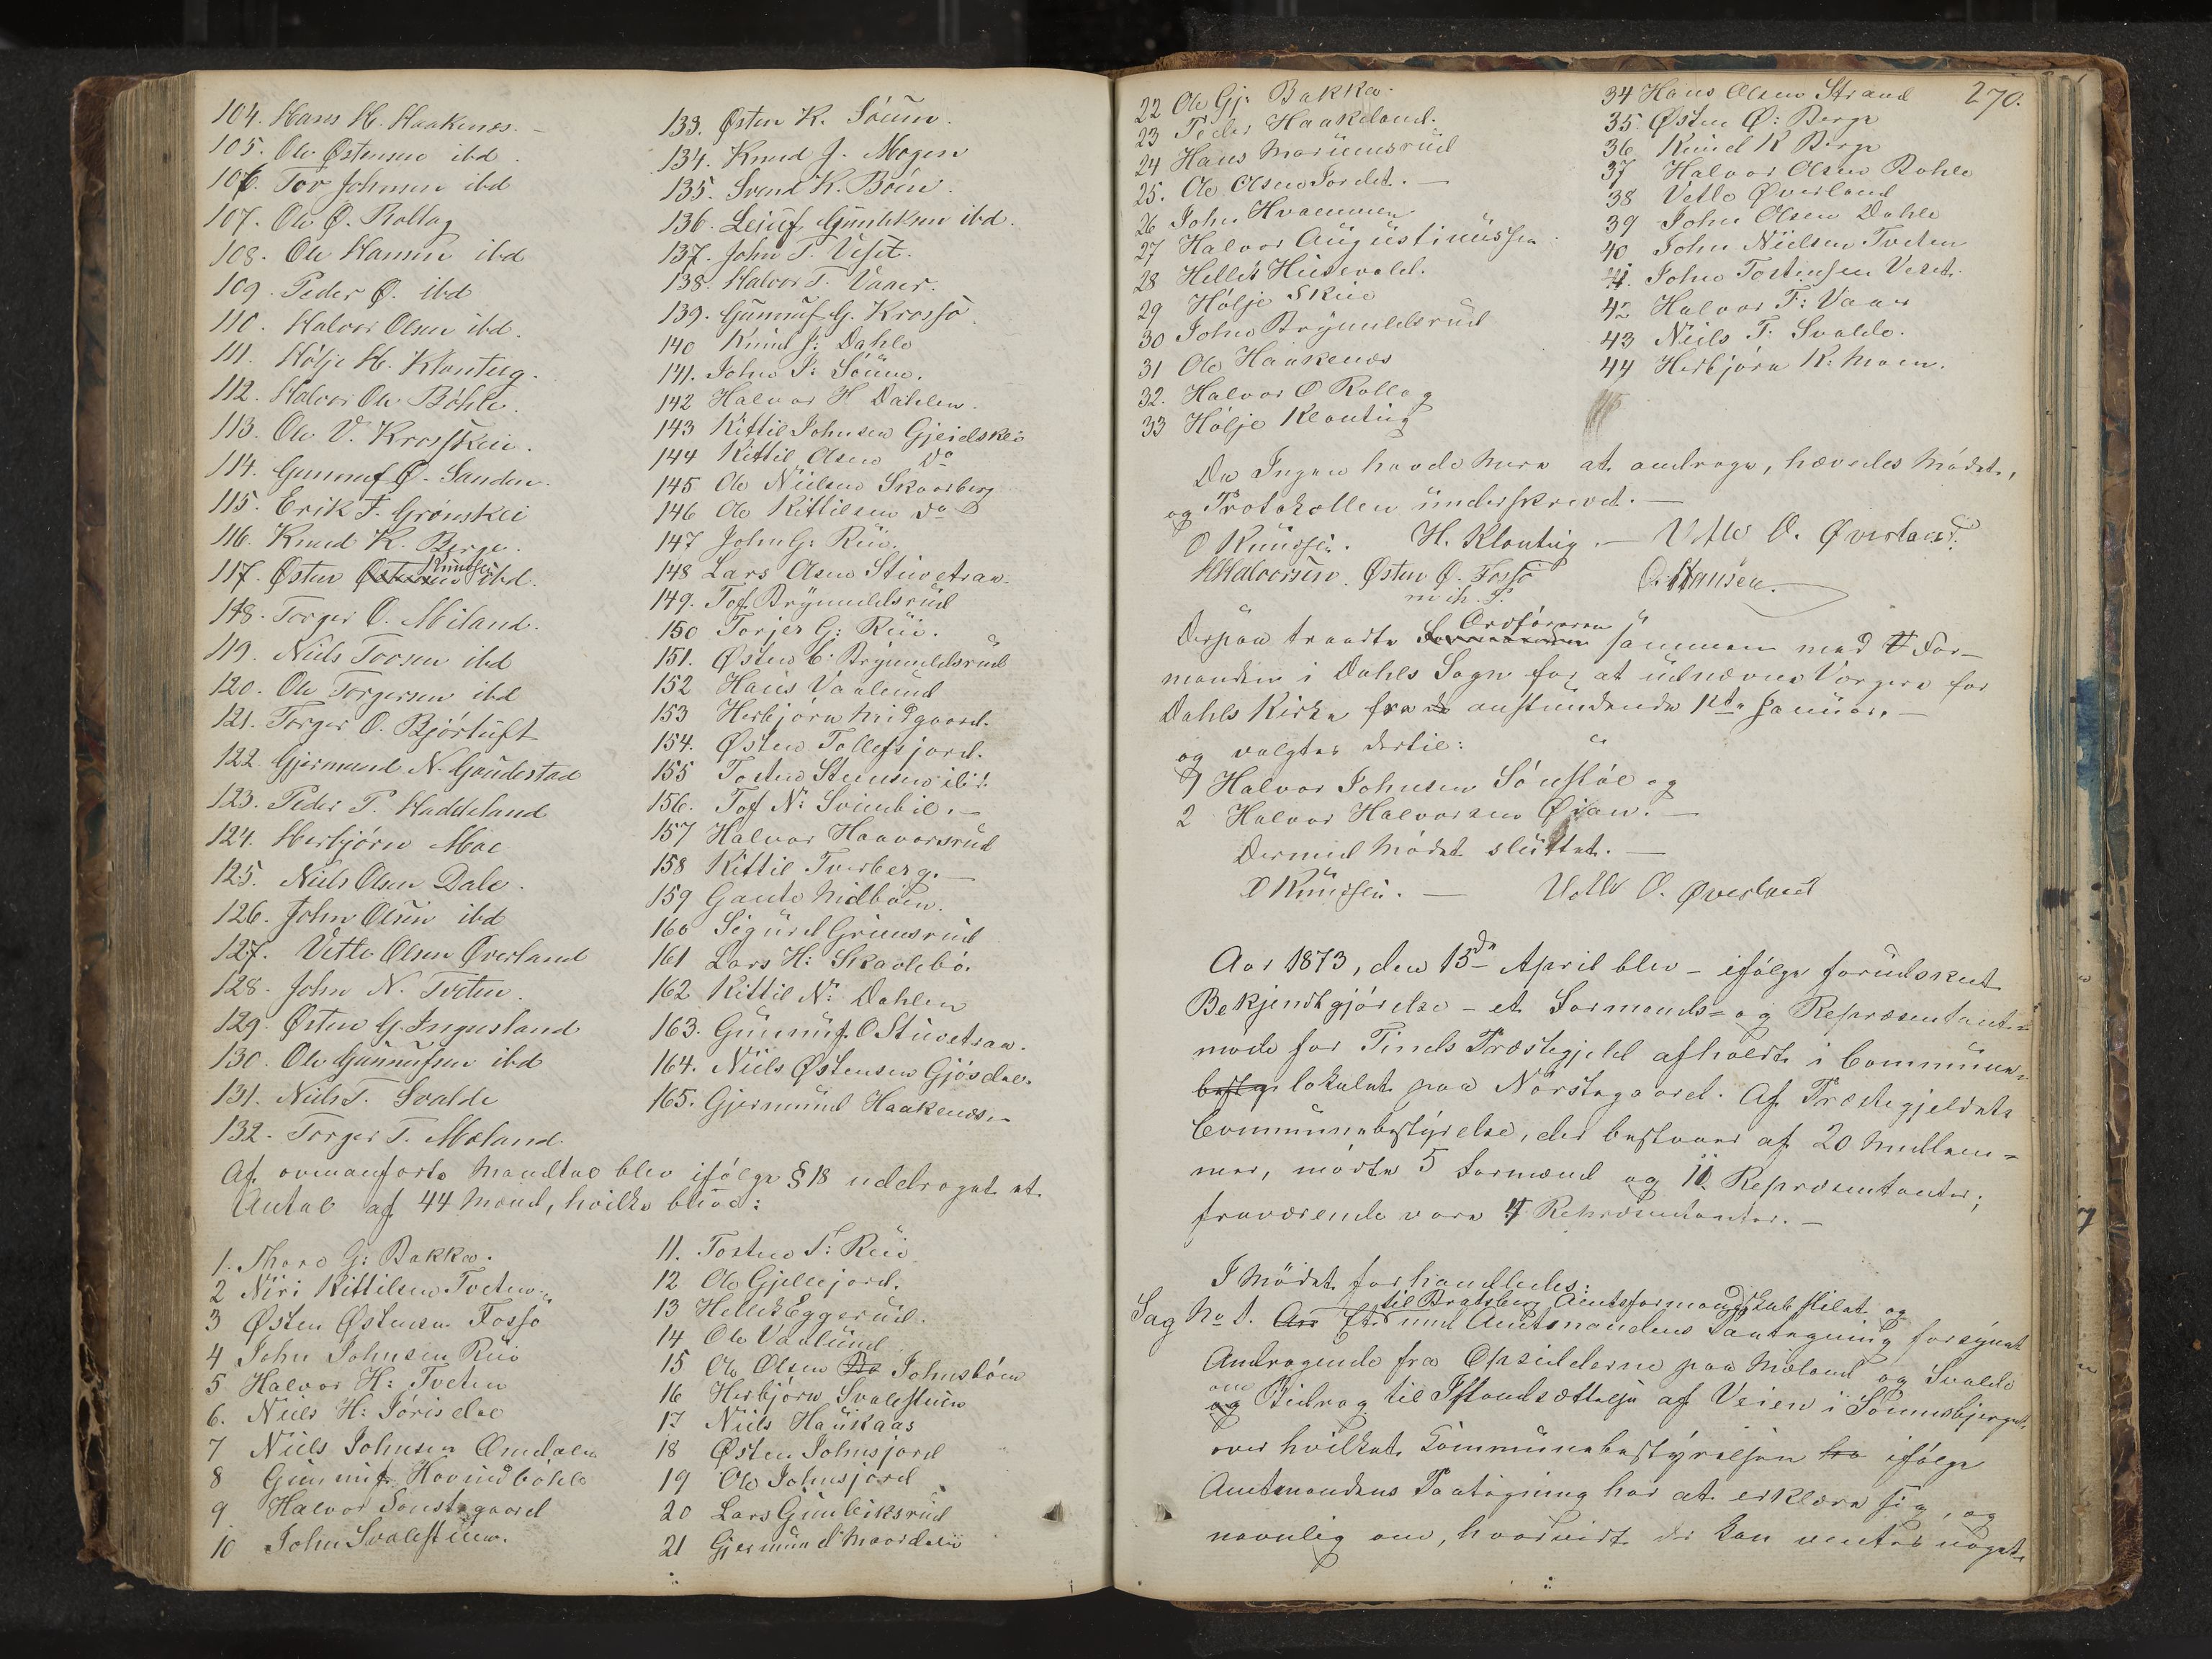 104. Hans H. Haakenæs. –
105. Ole Østensen ibd.
106. Tov Johnsen ibd
107. Ole Ø. Rollag
108. Ole Hansen ibd
109. Peder Ø. ibd
110. Halvor Olsen ibd.
111. Hølje H. Klonteig.
112. Halvor Ols Bøhle.
113. Ole V. Krosskei.
114. Gunnuf Ø. Sanden.
115. Erik F. Grønskei
116. Knud K. Berge.
117. Østen Knudsen ibd.
118. Torger O. Miland.
119. Niels Torsen ibd
120. Ole Torgersen ibd
121. Torger O. Bjørtuft
122. Gjermund N. Gaudestad
123. Peder P. Haddeland
124. Herbjørn Moe
125. Niels Olsen Dale.
126. John Olsen ibd
127. Vetle Olsen Øverland
128. John N. Tveten.
129. Østen G. Ingusland
130. Ole Gunnufsen ibd
131. Niels T. Svalde
132. Torger T. Moland.
133. Østen K. Sóum.
134. Knud J. Mogen
135. Svend K. Bóen.
136. Leiuf Gunleksen ibd.
137. John T. Veset.
138. Halvor T. Vaaer.
139. Gunnuf G. Krossó
140 Knud J: Dahle
141. John P: Sóum.
142 Halvor H Dahlen.
143 Kittil Johnsen Gjeidskei
144 Kittil Olsen Do
145 Ole Nielsen Skaarberg
146 Ole Kittilsen Do
147 John G: Rui.
148 Lars Olsen Stuvetraa.
149. Tof Brynildsrud
150 Torjer G: Rui.
151. Østen C: Brynildsrud
152 Hans Vaalund
153 Herbjórn Midgaard.
154. Østen Tollefsjord.
155 Tosten Steinsen ibd.
156. Tof N: Svinbil. –
157 Halvor Haavorsrud
158 Kittil Tverberg. –
159 Gaute Midbóen.
160 Sigurd Grimsrud
161 Lars H: Skaalebó.
162 Kittil N: Dahlen
163. Gunnuf O Stuvetraa.
164. Niels Østensen Gjósdal.
165. Gjermund Haakenæs. –
Af ovenanførte Mandtal blev ifólge § 18 uddraget et
Antal af 44 Mænd, hvilke blive:
1. Thore G: Bakka.
2 Niri Kittilsen Tveten.
3 Østen Østensen Fosso
4 John Johnsen Rui
5 Halvor H: Tveten
6. Niels H: Jórisdal
7 Niels Johnsen Omdalen
8 Gunnuf Hovindbóhle
9 Halvor Sónstegaard
10 John Svalestuen.
11. Tosten T: Rui
12 Ole Gjellejord.
13 Hellek Eggerud.
14 Ole Vaalund
15 Ole Olsen Johnsbóen
16 Herbjórn Svalestuen
17 Niels Haukaas
18 Østen Johnsjord
19 Ole Johnsjord
20 Lars Gunleiksrud
21 Gjermund Maardalen
270.
22 Ole Gj: Bakka.
23 Peder Haakeland.
24 Hans Mariensrud
25. Ole Olsen Jordet. –
26 John Hvammen
27 Halvor Augustinussen
28 Hellek Husevold.
29 Hólje Skeie
30 John Brynildsrud
31 Ole Haakenæs
32. Halvor O Rollag
33 Hólje Klonteig
34 Hans Olsen Strand
35. Østen Ø: Berge
36 Knud K Berge
37 Halvor Olsen Bohle
38 Vetle Øverland
39 John Olsen Dahle
40 John Nielsen Tveten
41. John Tostensen Veset.
42 Halvor T: Vaaer
43 Niels T. Svalde.
44 Herbjórn K: Moen.
Da Ingen havde mere at andrage, hævedes Módet,
og Protokollen underskrevet. –
O Knudsen. H. Klonteig. – Vetle O. Øverland.
H Halvorsen. Østen Ø. Fosso O. Hansen.
m. ih. P.
Derpaa traadte Ordføreren sammen med For-
manden i Dahls Sogn for at udnævne Værgere for
Dahls Kirke fra anstundende 1ste Januar. –
og valgtes dertil:
1 Halvor Johnsen Sónstól og
2 Halvor Halvorsen Øian. –
Dermed Módet sluttet. –
O Knudsen. – Vetle O. Øverland
Aar 1873, den 15de April blev – ifólge forudskeet
Bekjendtgjórelse – et Formands= og Repræsentant=
møde for Tinds Præstegjeld afholdt i Commune=
lokalet paa Nórstegaard. Af Præstegjeldets
Communebestyrelse, der bestaaer af 20 Medlem=
mer, mødte 5 Formænd og 11 Repræsentanter;
fraværende vare 4 Repræsentanter. –
I Módet forhandledes:
Sag No 1. Et til Bratsberg Amtsformandskab stilet og
med Amtmandens Paategning forsynet
Andragende fra Opsidderne paa Miland og Svalde
om Bidrag til Istandsættelse af Veien i Sóumsbjerget,
over hvilket Communebestyrelsen ifólge
Amtmandens Paategning har at erklære sig, og
navnlig om, hvorvidt der kan ventes noget